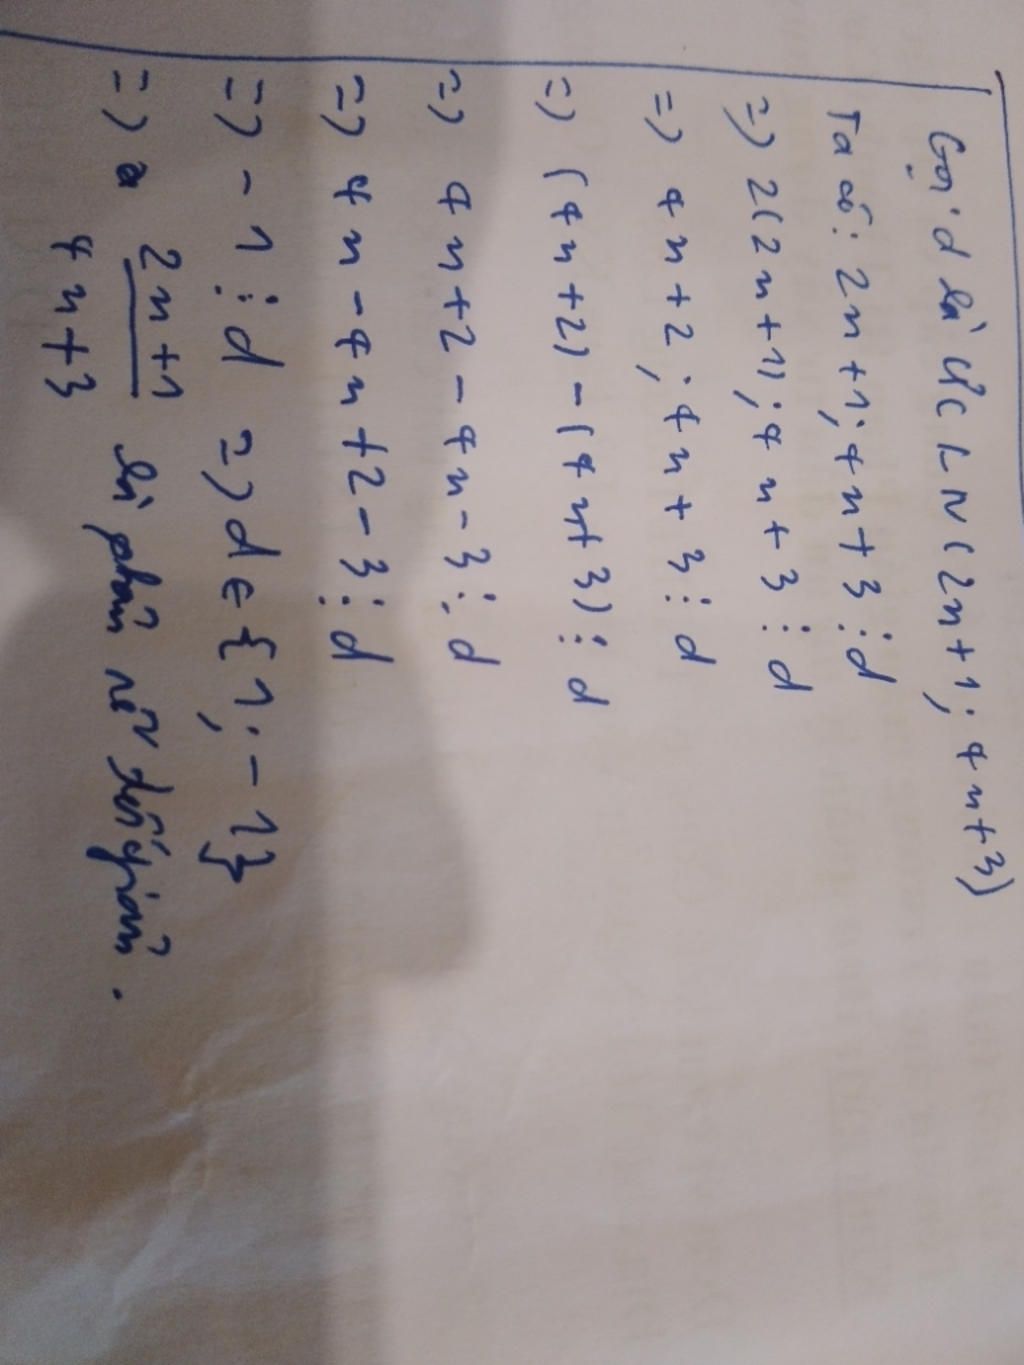 Gọi d là ƯCLN(2n+1; 4n+3)
Ta có: 2n+1; 4n+3 ⋮ d
=) 2(2n+1); 4n+3 ⋮ d
=) 4n+2; 4n+3 ⋮ d
=) (4n+2)-(4n+3) ⋮ d
=) 4n+2-4n-3 ⋮ d
=) 4n-4n+2-3 ⋮ d
=) -1 ⋮ d =) d ∈ {1; -1}
=) 2n+1 là phân số tối giản.
4n+3